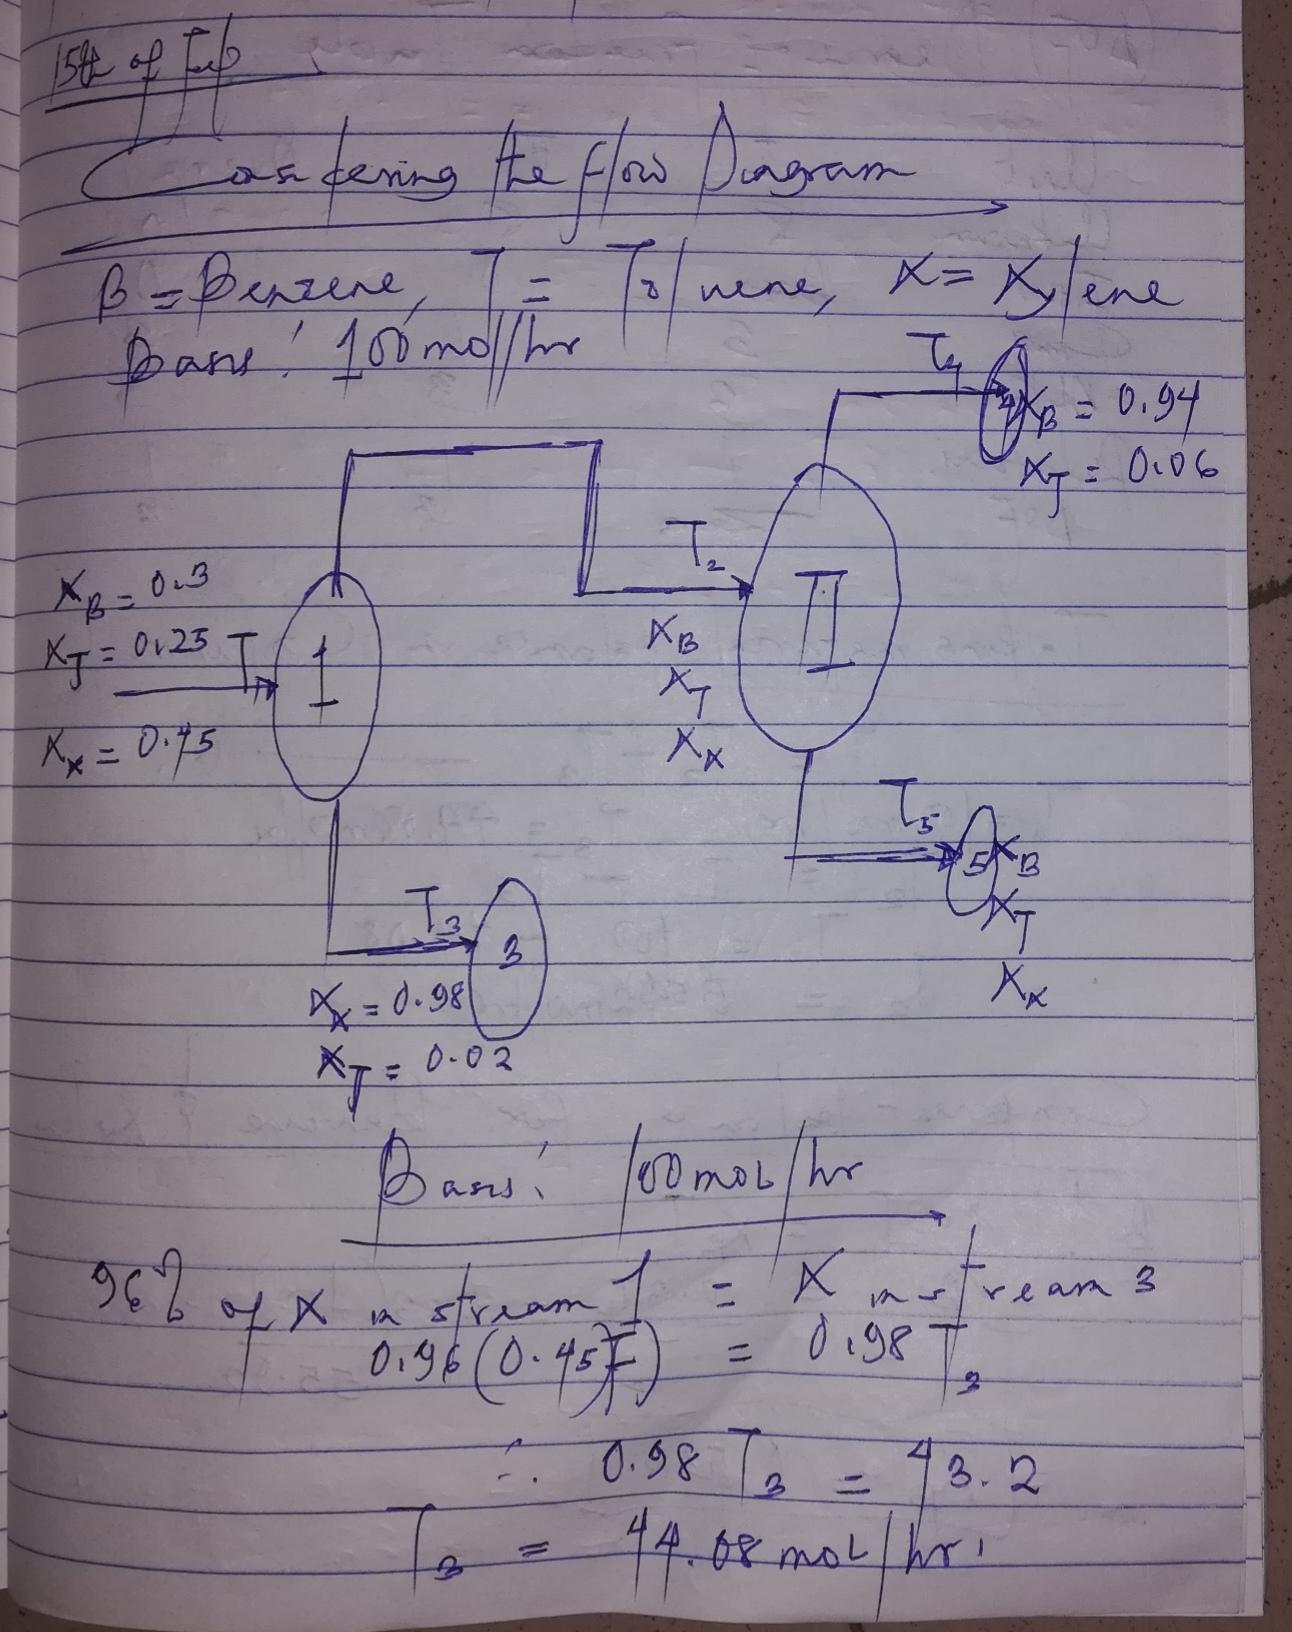 15th of Feb
Considering the flow Diagram
B = Benzene, T = Toluene, X = Xylene
Basis: 100 mol/hr
T4
4
XB = 0.94
XT = 0.06
T2
II
XB = 0.3
XT = 0.25
T
1
XX = 0.45
XB
XT
XX
T5
5
XB
XT
XX
T3
3
XX = 0.98
XT = 0.02
Basis: 100 mol/hr
96% of X in stream 1 = X in stream 3
0.96(0.45F) = 0.98 T3
∴ 0.98 T3 = 43.2
T3 = 44.08 mol/hr.